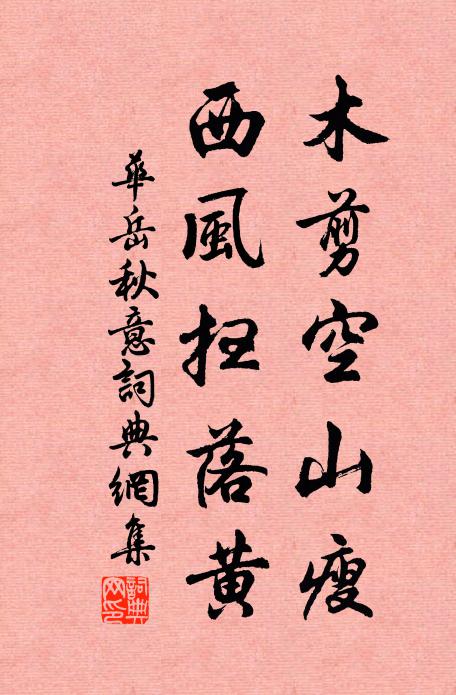 木剪空山瘦
西風扫落黄
華岳秋意詞典網集
詞典网印